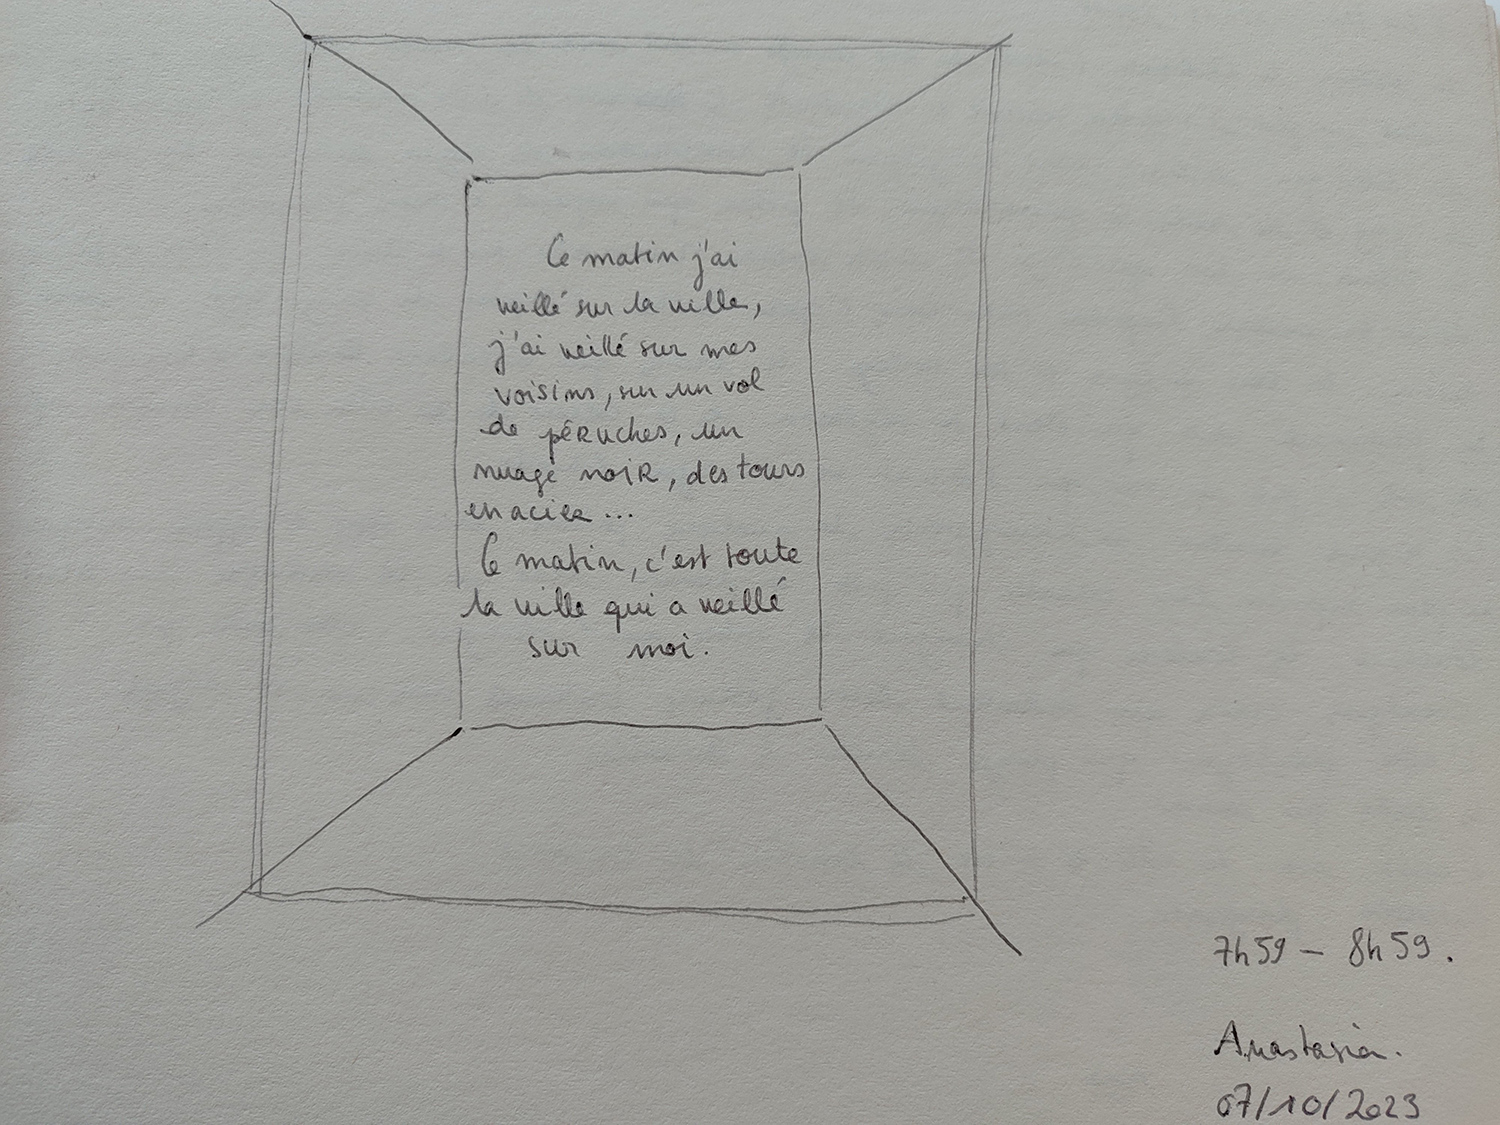 Ce matin j'ai
veillé sur la ville,
j'ai veillé sur mes
voisins, sur un vol
de péRuches, un
nuage noiR, des tours
en acier...
Ce matin, c'est toute
la ville qui a veillé
sur moi.
7h59 – 8h59.
Anastasia.
07/10/2023